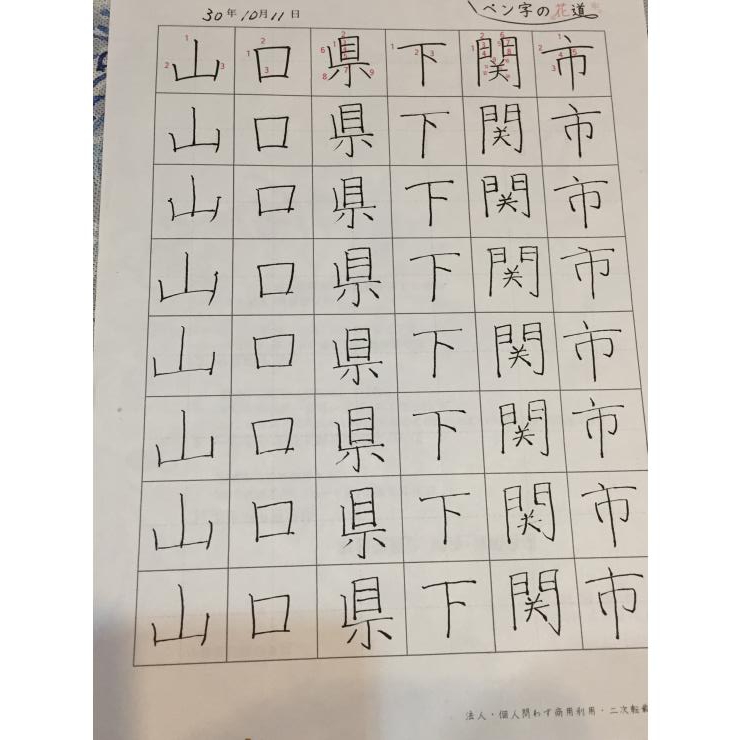 30年10月11日 ペン字の花道
山口県下関市
山口県下関市
山口県下関市
山口県下関市
山口県下関市
山口県下関市
山口県下関市
山口県下関市
法人・個人問わず商用利用・二次転載